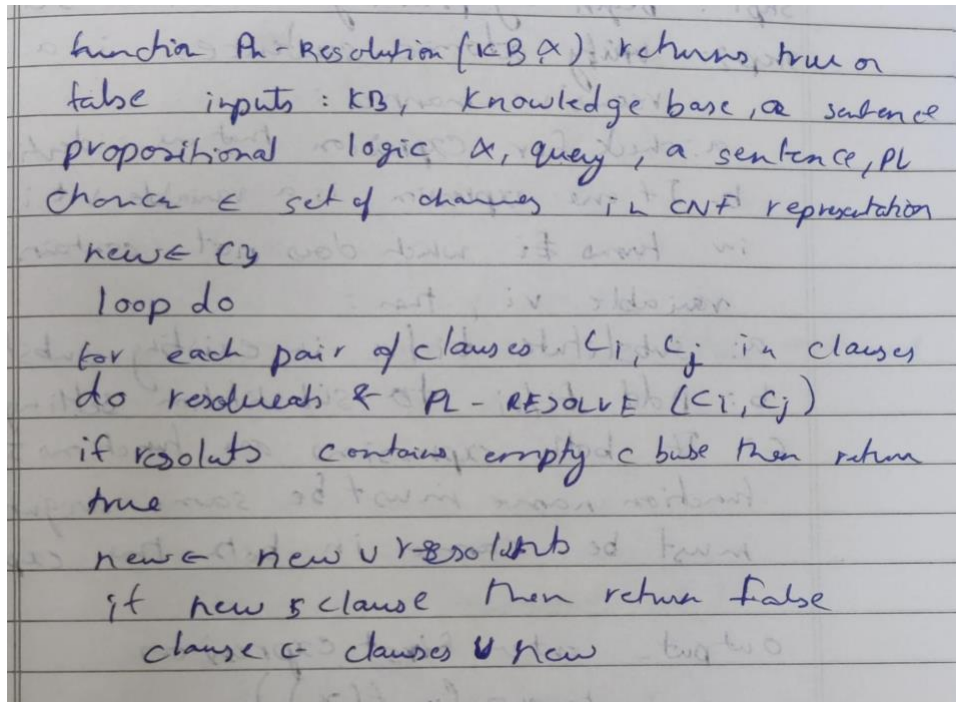 function PL-Resolution (KB α) returns, true or
false inputs : KB, Knowledge base, a sentence
propositional logic α, query, a sentence, PL
← set of in CNF representation
new ← {}
loop do
for each pair of clauses Ci, Cj in clauses
do ← PL-RESOLVE (Ci, Cj)
if contains empty then return
true
new ← new ∪
if new ⊆ clause then return false
clause ← clauses ∪ new